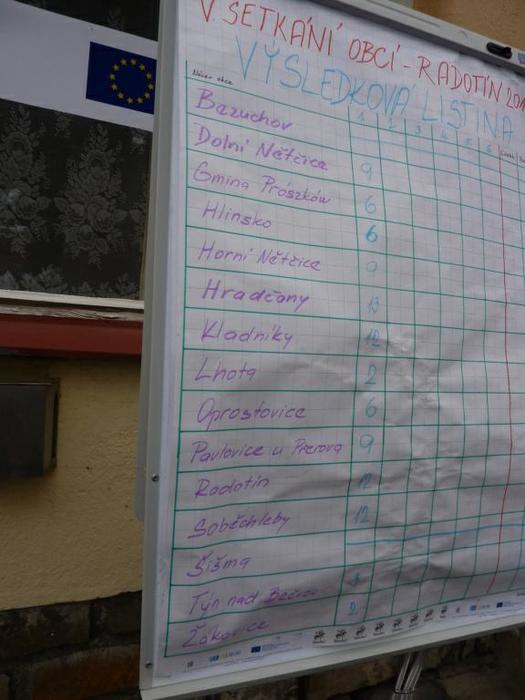 V SETKÁNÍ OBCÍ - RADOTÍN
VÝSLEDKOVÁ LISTINA
Název obce 1 2 3 4 5 6
Bezuchov
Dolní Nětčice 9
Gmina Prószków 6
Hlinsko 6
Horní Nětčice
Hradčany 13
Kladníky 12
Lhota 2
Oprostovice 6
Pavlovice u Přerova 9
Radotín 12
Soběchleby 12
Šišma
Týn nad Bečvou
Žákovice 2